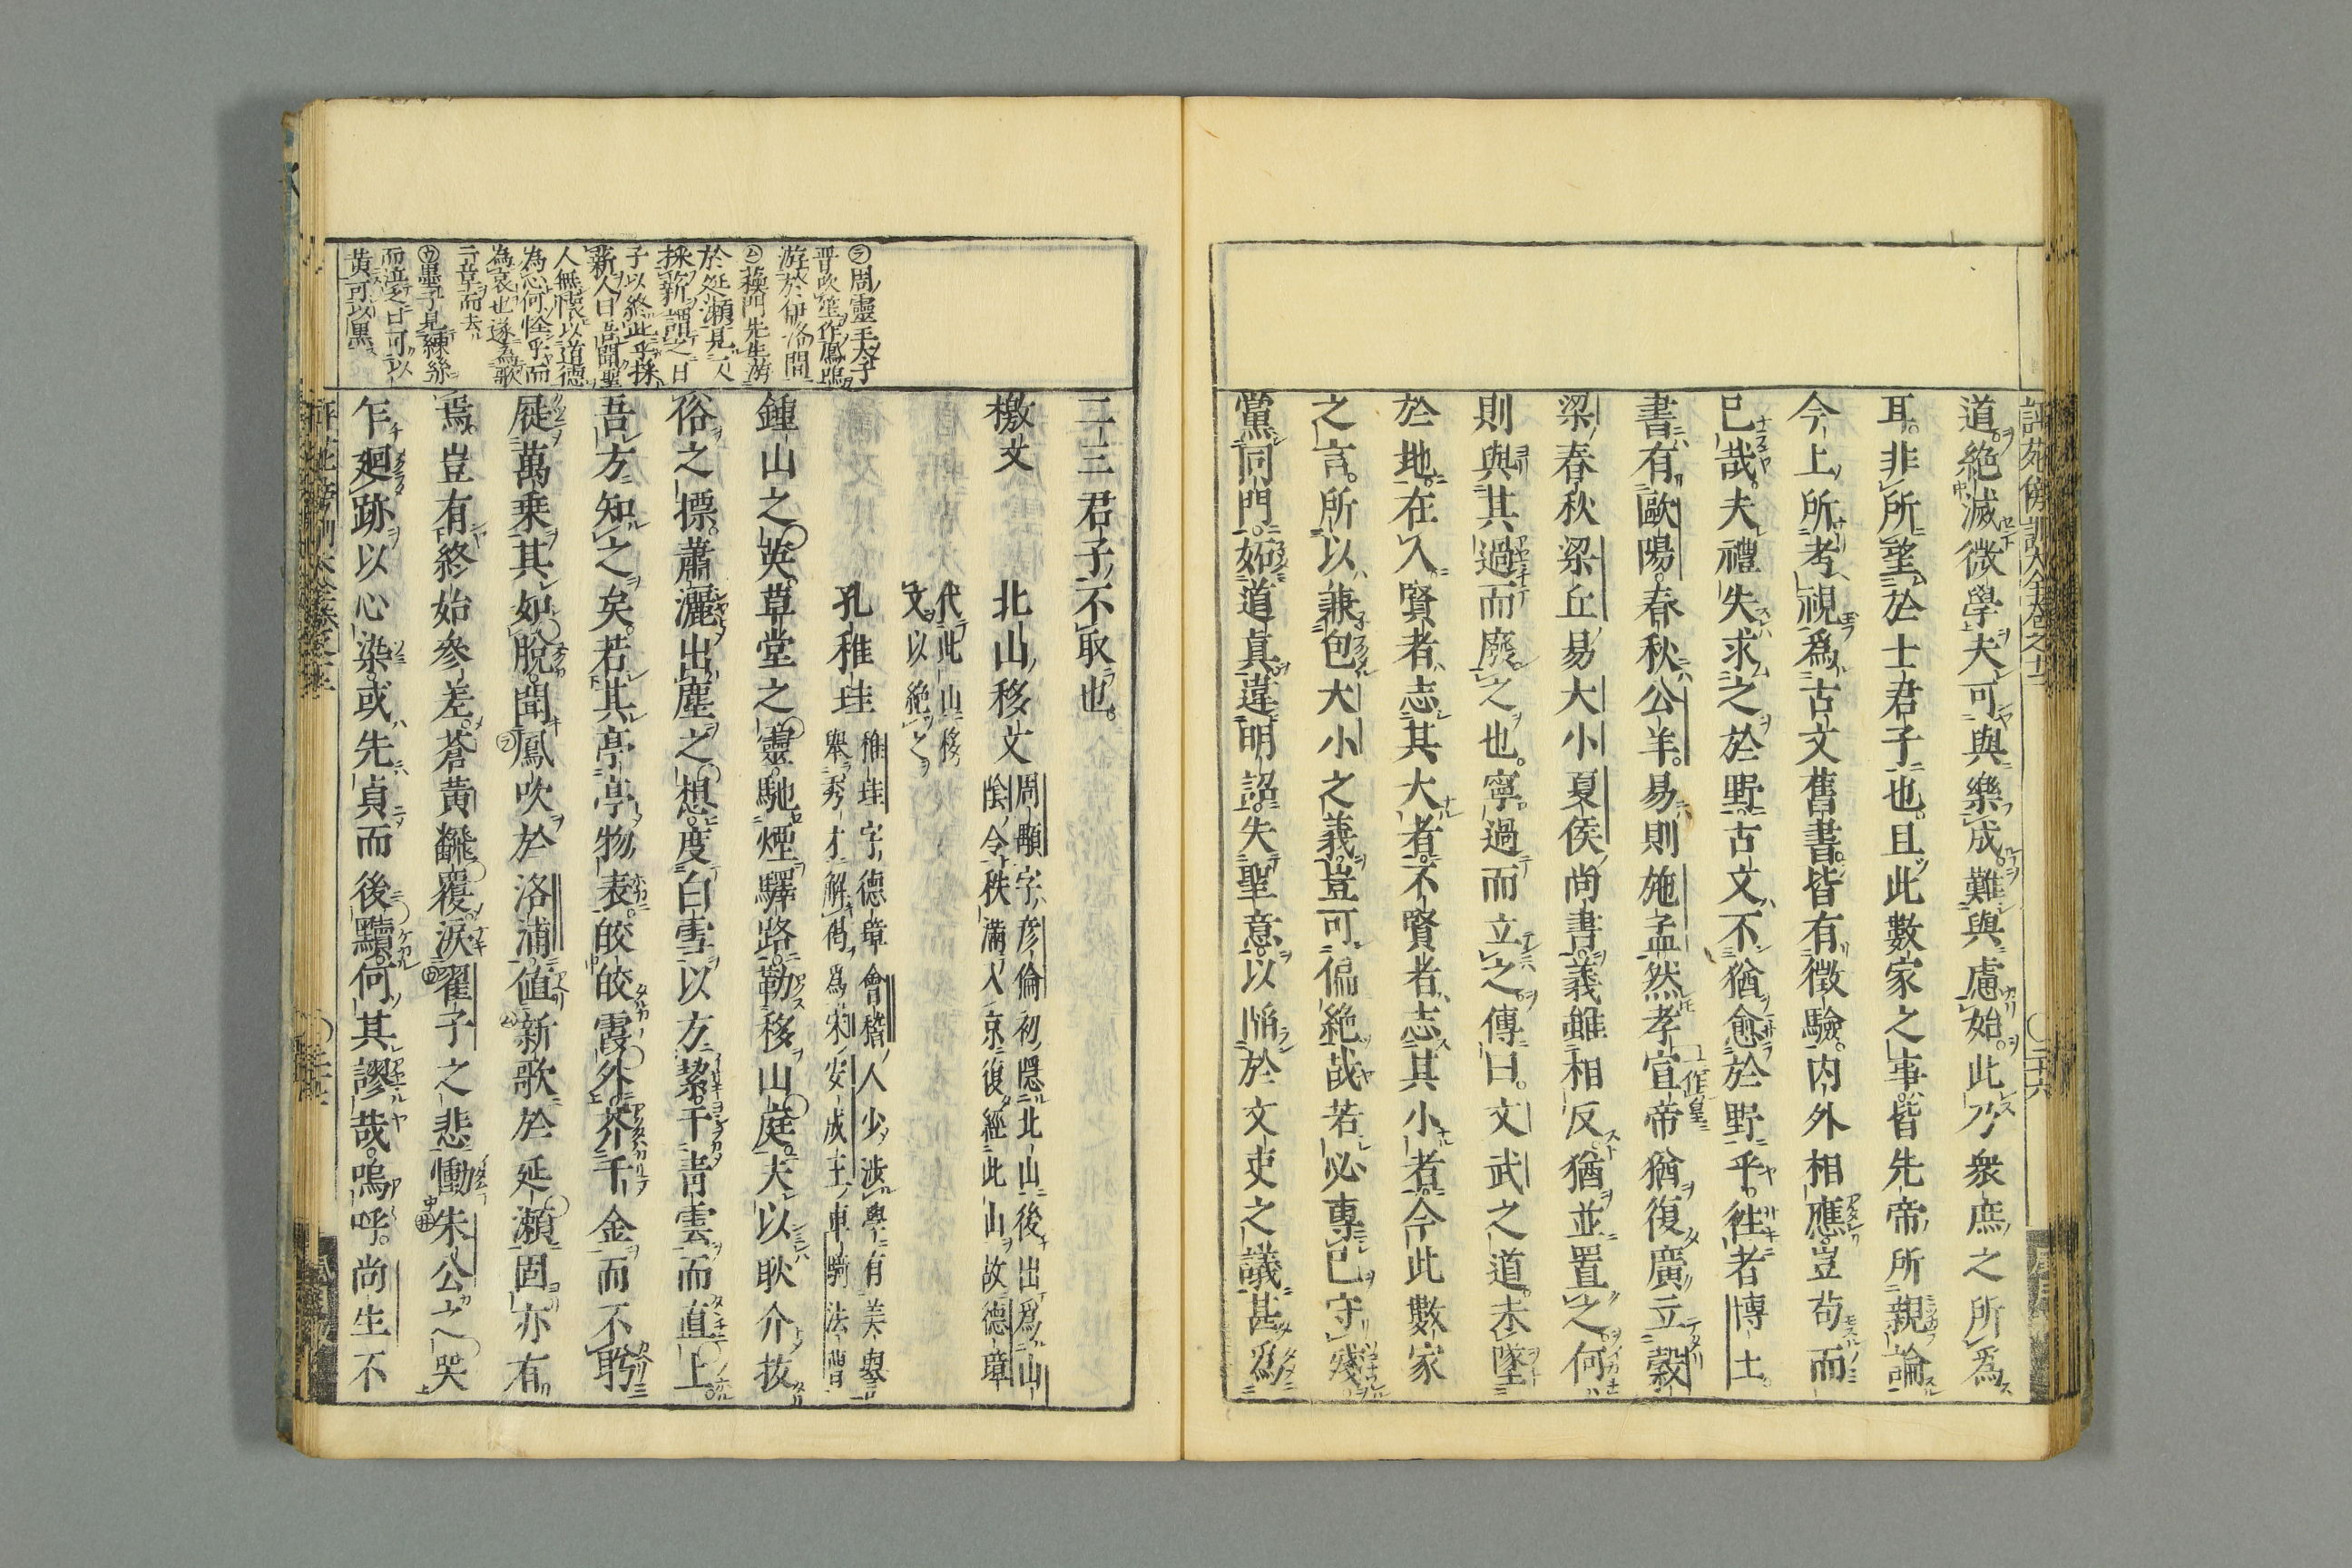 道絶滅微學夫可與樂成難與慮始此乃衆庶之所爲
耳非所望於士君子也且此數家之事皆先帝所親論
今上所考視爲古文舊書皆有徴驗内外相應豈苟而
已哉夫禮失求之於野古文不猶愈於野乎往者博士
書有歐陽春秋公羊易則施孟然孝宣帝猶復廣立穀
梁春秋梁丘易大小夏侯尚書義雖相反猶並置之何
則與其過而廢之也寧過而立之傳曰文武之道未墜
於地在人賢者志其大者不賢者志其小者今此數家
之言所以兼包大小之義豈可偏絶哉若必專已守殘
黨同門妬道眞違明詔失聖意以陷於文吏之議甚爲
二三君子不取也
檄文
北山移文
周顒字彦倫初隠北山後出爲山
陰令秩滿入京復經此山故德璋
代此山移
文以絶之
孔稚珪
稚珪字德璋會稽人少渉學有美譽
舉秀才解褐爲宋安成王車騎法曹
鍾山之英草堂之靈馳煙驛路勒移山庭夫以耿介拔
俗之標蕭灑出塵之想度白雪以方絜干靑雲而直上
吾方知之矣若其亭亭物表皎皎霞外芥千金而不盻
屣萬乗其如脱聞鳳吹於洛浦値新歌於延瀬固亦有
焉豈有終始參差蒼黄飜覆涙翟子之悲慟朱公之哭
乍廻跡以心染或先貞而後黷何其謬哉嗚呼尚生不
周靈王太子
晋吹笙作鳳鳴
游於伊洛間
蘓門先生游
於延瀬見一人
採薪謂之曰
子以終此乎採
薪人曰吾聞聖
人無懐以道德
為心何怪乎而
為哀也遂為歌
二章而去
墨子見練絲
而泣之曰可以
黄可以黒